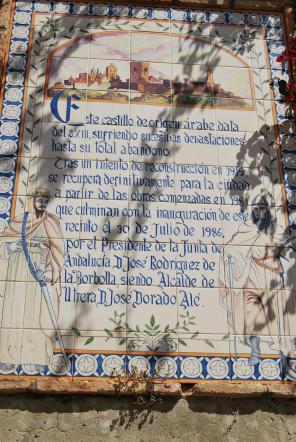 Este castillo de origen árabe data
del s.XIII, sufriendo sucesivas devastaciones
hasta su total abandono.
Tras un intento de reconstrucción en
se recupera definitivamente para la ciudad
a partir de las obras comenzadas en 1981
que culminan con la inauguración de este
recinto el 30 de Julio de 1986,
por el Presidente de la Junta de
Andalucía D. José Rodríguez de
la Borbolla, siendo Alcalde de
Utrera D. José Dorado Alé.